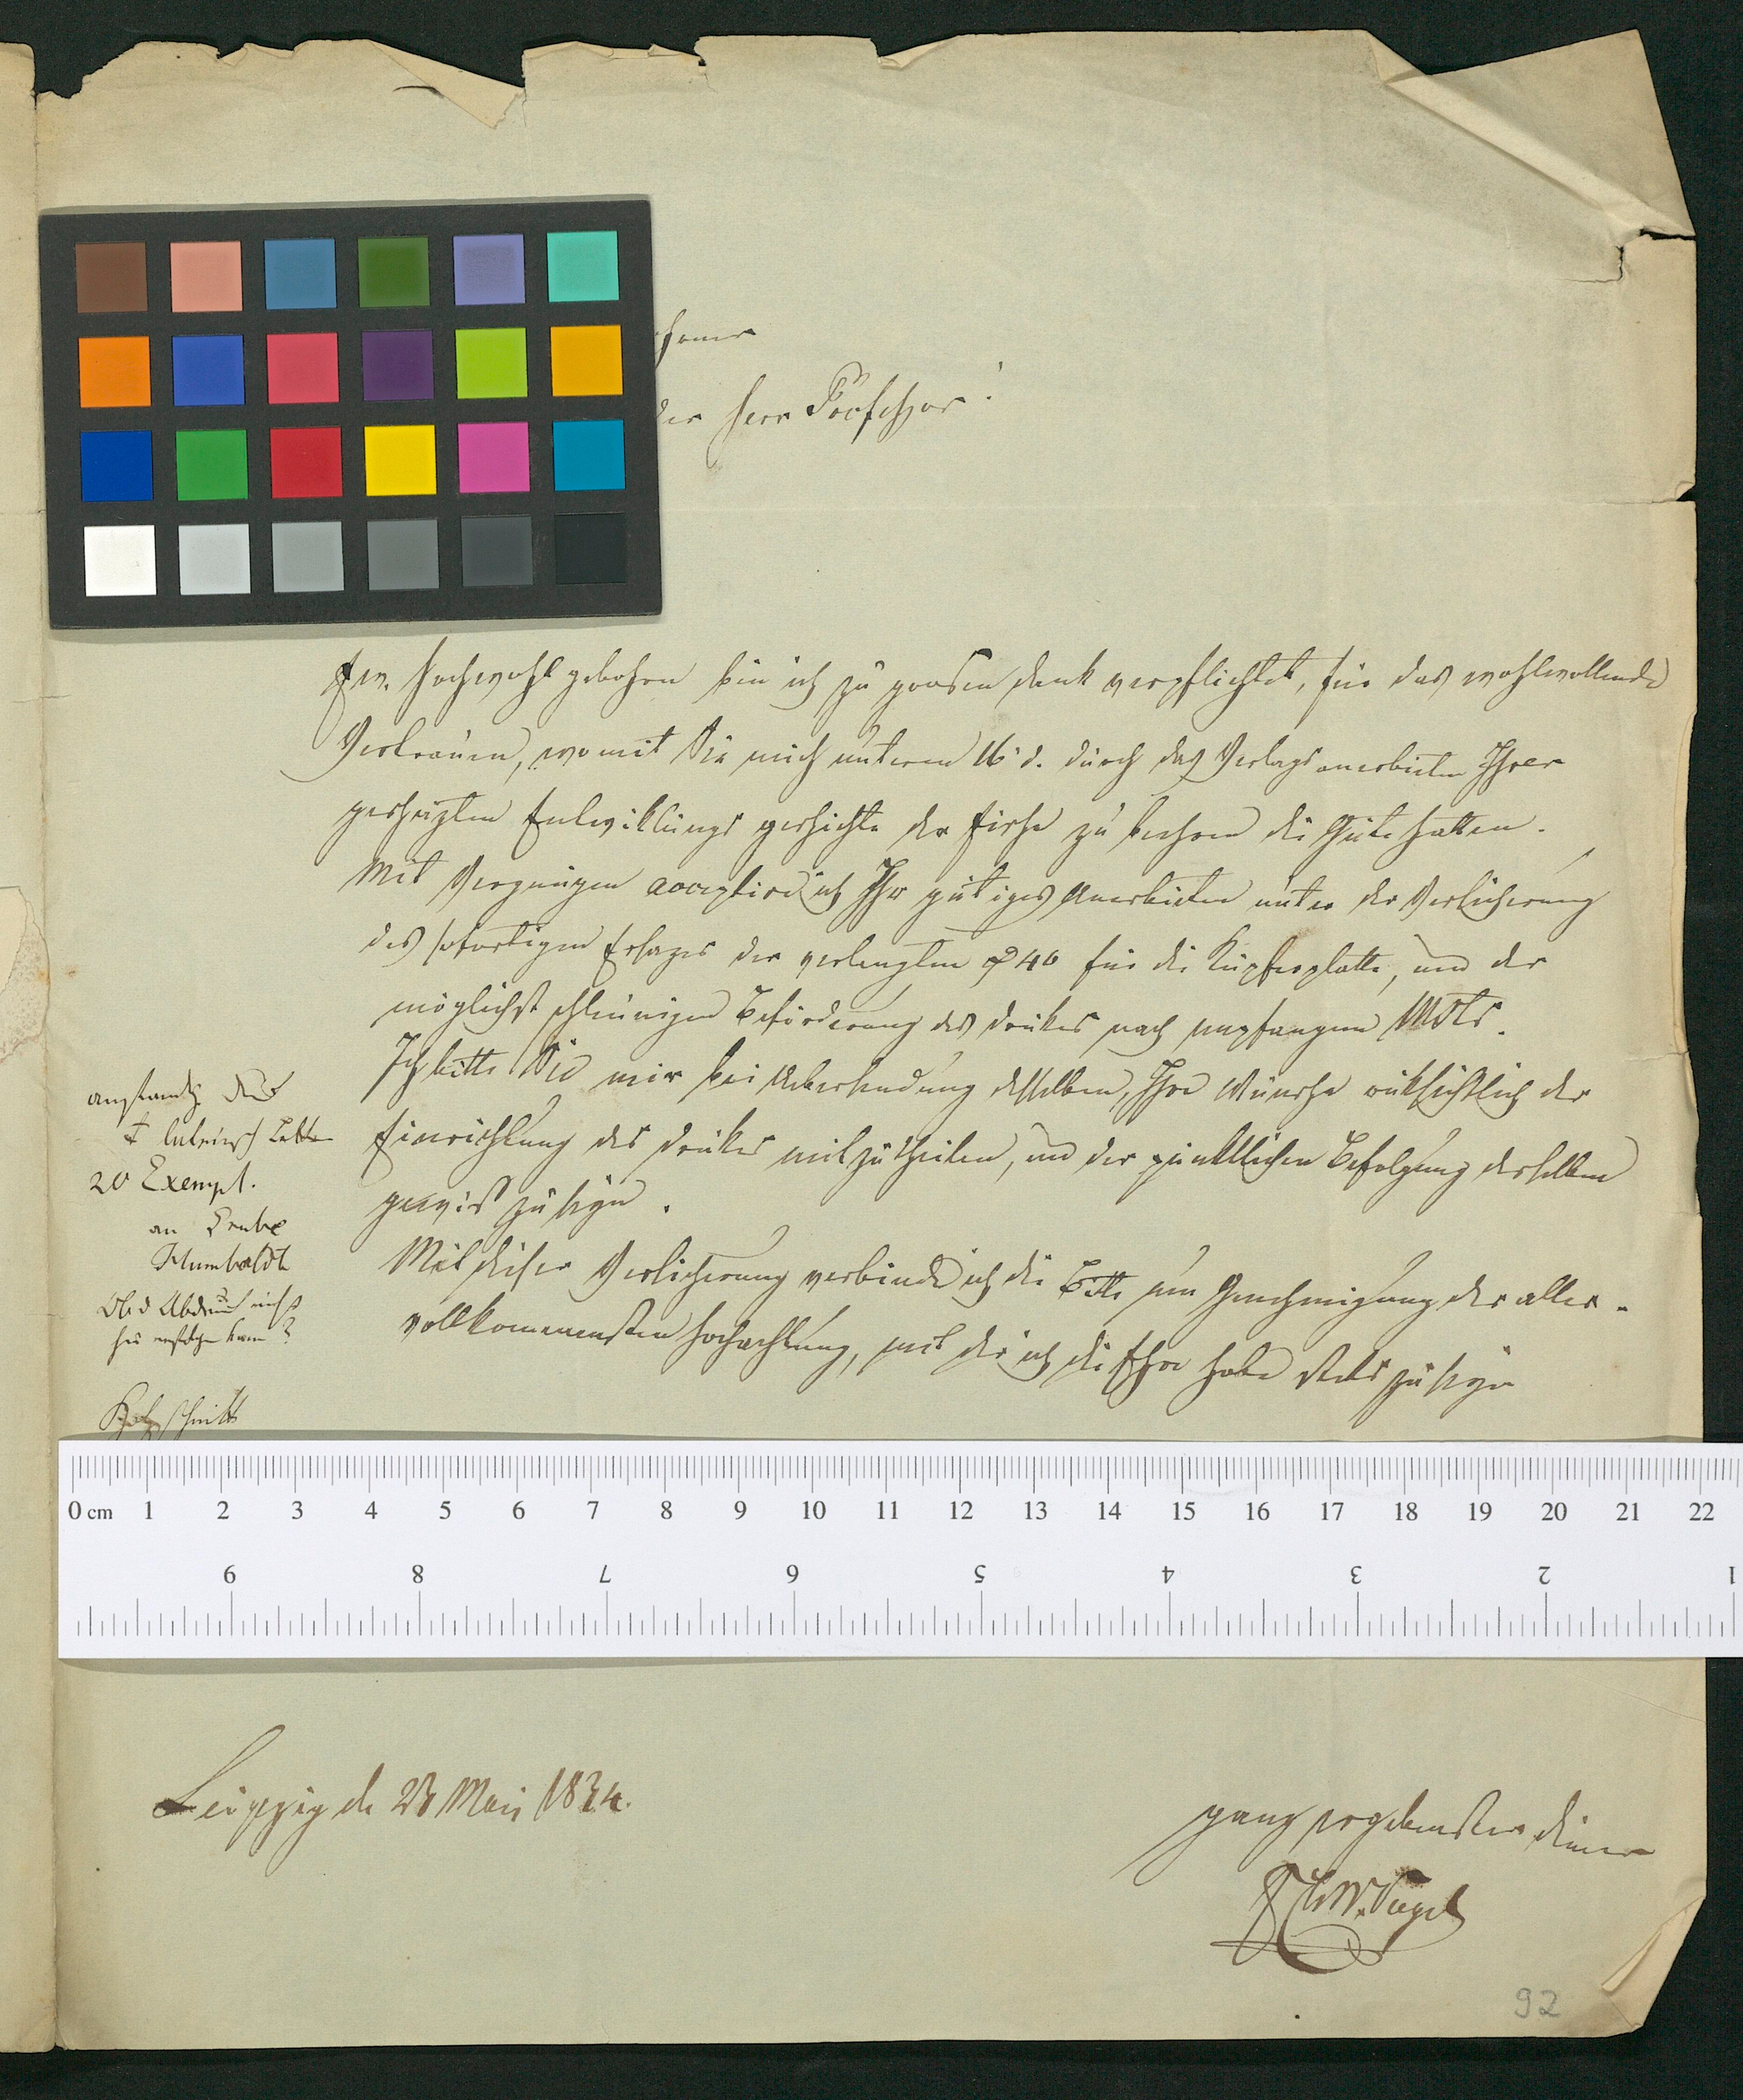 der Herr Professor!
Ew. Hochwohlgebohren bin ich zu grosem Dank verpflichtet, für das wohlwollende
Vertrauen, womit Sie mich unterm 16 d. durch das Verlagsanerbieten Ihrer
geschäzten Entwiklungsgeschichte der Fische zu beehren die Güte hatten.
Mit Vergnügen acceptire ich Ihr gütiges Anerbieten unter der Versicherung
des sofortigen Ersazes der verlangten 40 für die Kupferplatte, und der
möglichst schleunigen Beförderung des Drukes nach empfangenem Msts.
Ich bitte Sie mir bei Uebersendung desselben, Ihre Wünsche rüksichtlich der
Einrichtung des Drukes mitzutheilen, und der pünktlichen Befolgung derselben
gewiß zu seyn.
Mit dieser Versicherung verbinde ich die Bitte um Genehmigung der aller-
vollkommensten Hochachtung, mit der ich die Ehre habe stets zu seyn
lateinisch Letter
20 Exempl.
an
Humboldt
Ob d Abdruck nicht
hier erfolgen kann?
Holzschnitt
0 cm 1 2 3 4 5 6 7 8 9 10 11 12 13 14 15 16 17 18 19 20 21 22
9 8 7 6 5 4 3 2 1
Leipzig de 23 Mai 1834.
ganz ergebenster Diener
F C W. Vogel
92